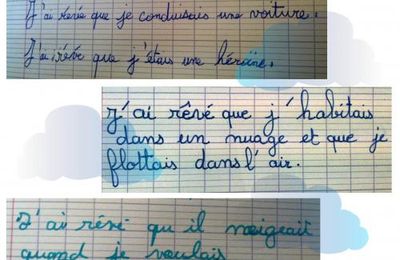 J'ai rêvé que je conduisais une voiture.
J'ai rêvé que j'étais une héroïne.
J'ai rêvé que j'habitais
dans un nuage et que je
flottais dans l'air.
J'ai rêvé qu'il neigeait
quand je voulais